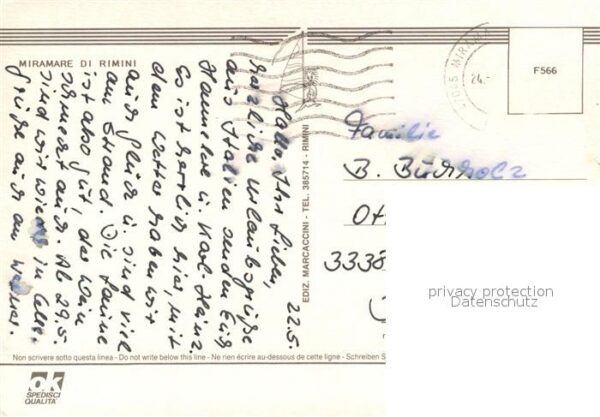 MIRAMARE DI RIMINI
22.5.
Hallo, Ihr Lieben,
herzliche Urlaubsgrüße
aus Italien senden Euch
Hannelore u. Karl-Heinz.
Es ist herrlich hier, mit
dem Wetter haben wir
auch Glück u. sind viel
am Strand. Die Laune
ist also gut, der Wein
schmeckt auch. Ab 29.5.
sind wir wieder in Celle.
Grüße auch an
EDIZ. MARCACCINI - TEL. 385714 - RIMINI
24.-
F566
Familie
B. Buchholz
3338
privacy protection
Datenschutz
Non scrivere sotto questa linea - Do not write below this line - Ne rien écrire au-dessous de cette ligne - Schreiben S
ok
SPEDISCI
QUALITÀ